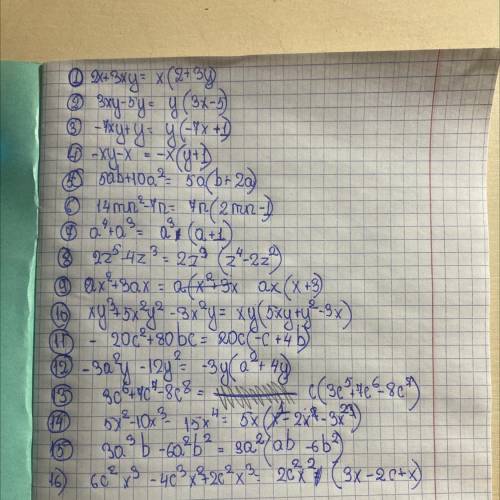 ① 2x+3xy = x(2+3y)
② 3xy-5y = y(3x-5)
③ -7xy+y = y(-7x+1)
④ -xy-x = -x(y+1)
⑤ 5ab+10a² = 5a(b+2a)
⑥ 14mn²-7n = 7n(2mn-1)
⑦ a⁴+a³ = a³(a+1)
⑧ 2z⁵-4z³ = 2z³(z⁴-2z²)
⑨ ax²+3ax = a(x²+3x ax(x+3)
⑩ xy³+5x²y²-3x²y = xy(5xy+y²-3x)
⑪ -20c²+80bc = 20c(-c+4b)
⑫ -3a²y-12y² = -3y(a²+4y)
⑬ 3c⁶+7c⁷-8c⁸ = c(3c⁵+7c⁶-8c⁷)
⑭ 5x²-10x³-15x⁴ = 5x(x-2x²-3x³)
⑮ 3a³b-6a²b² = 3a²(ab-6b²)
16) 6c²x³-4c³x²+2c²x³ = 2c²x²(3x-2c+x)